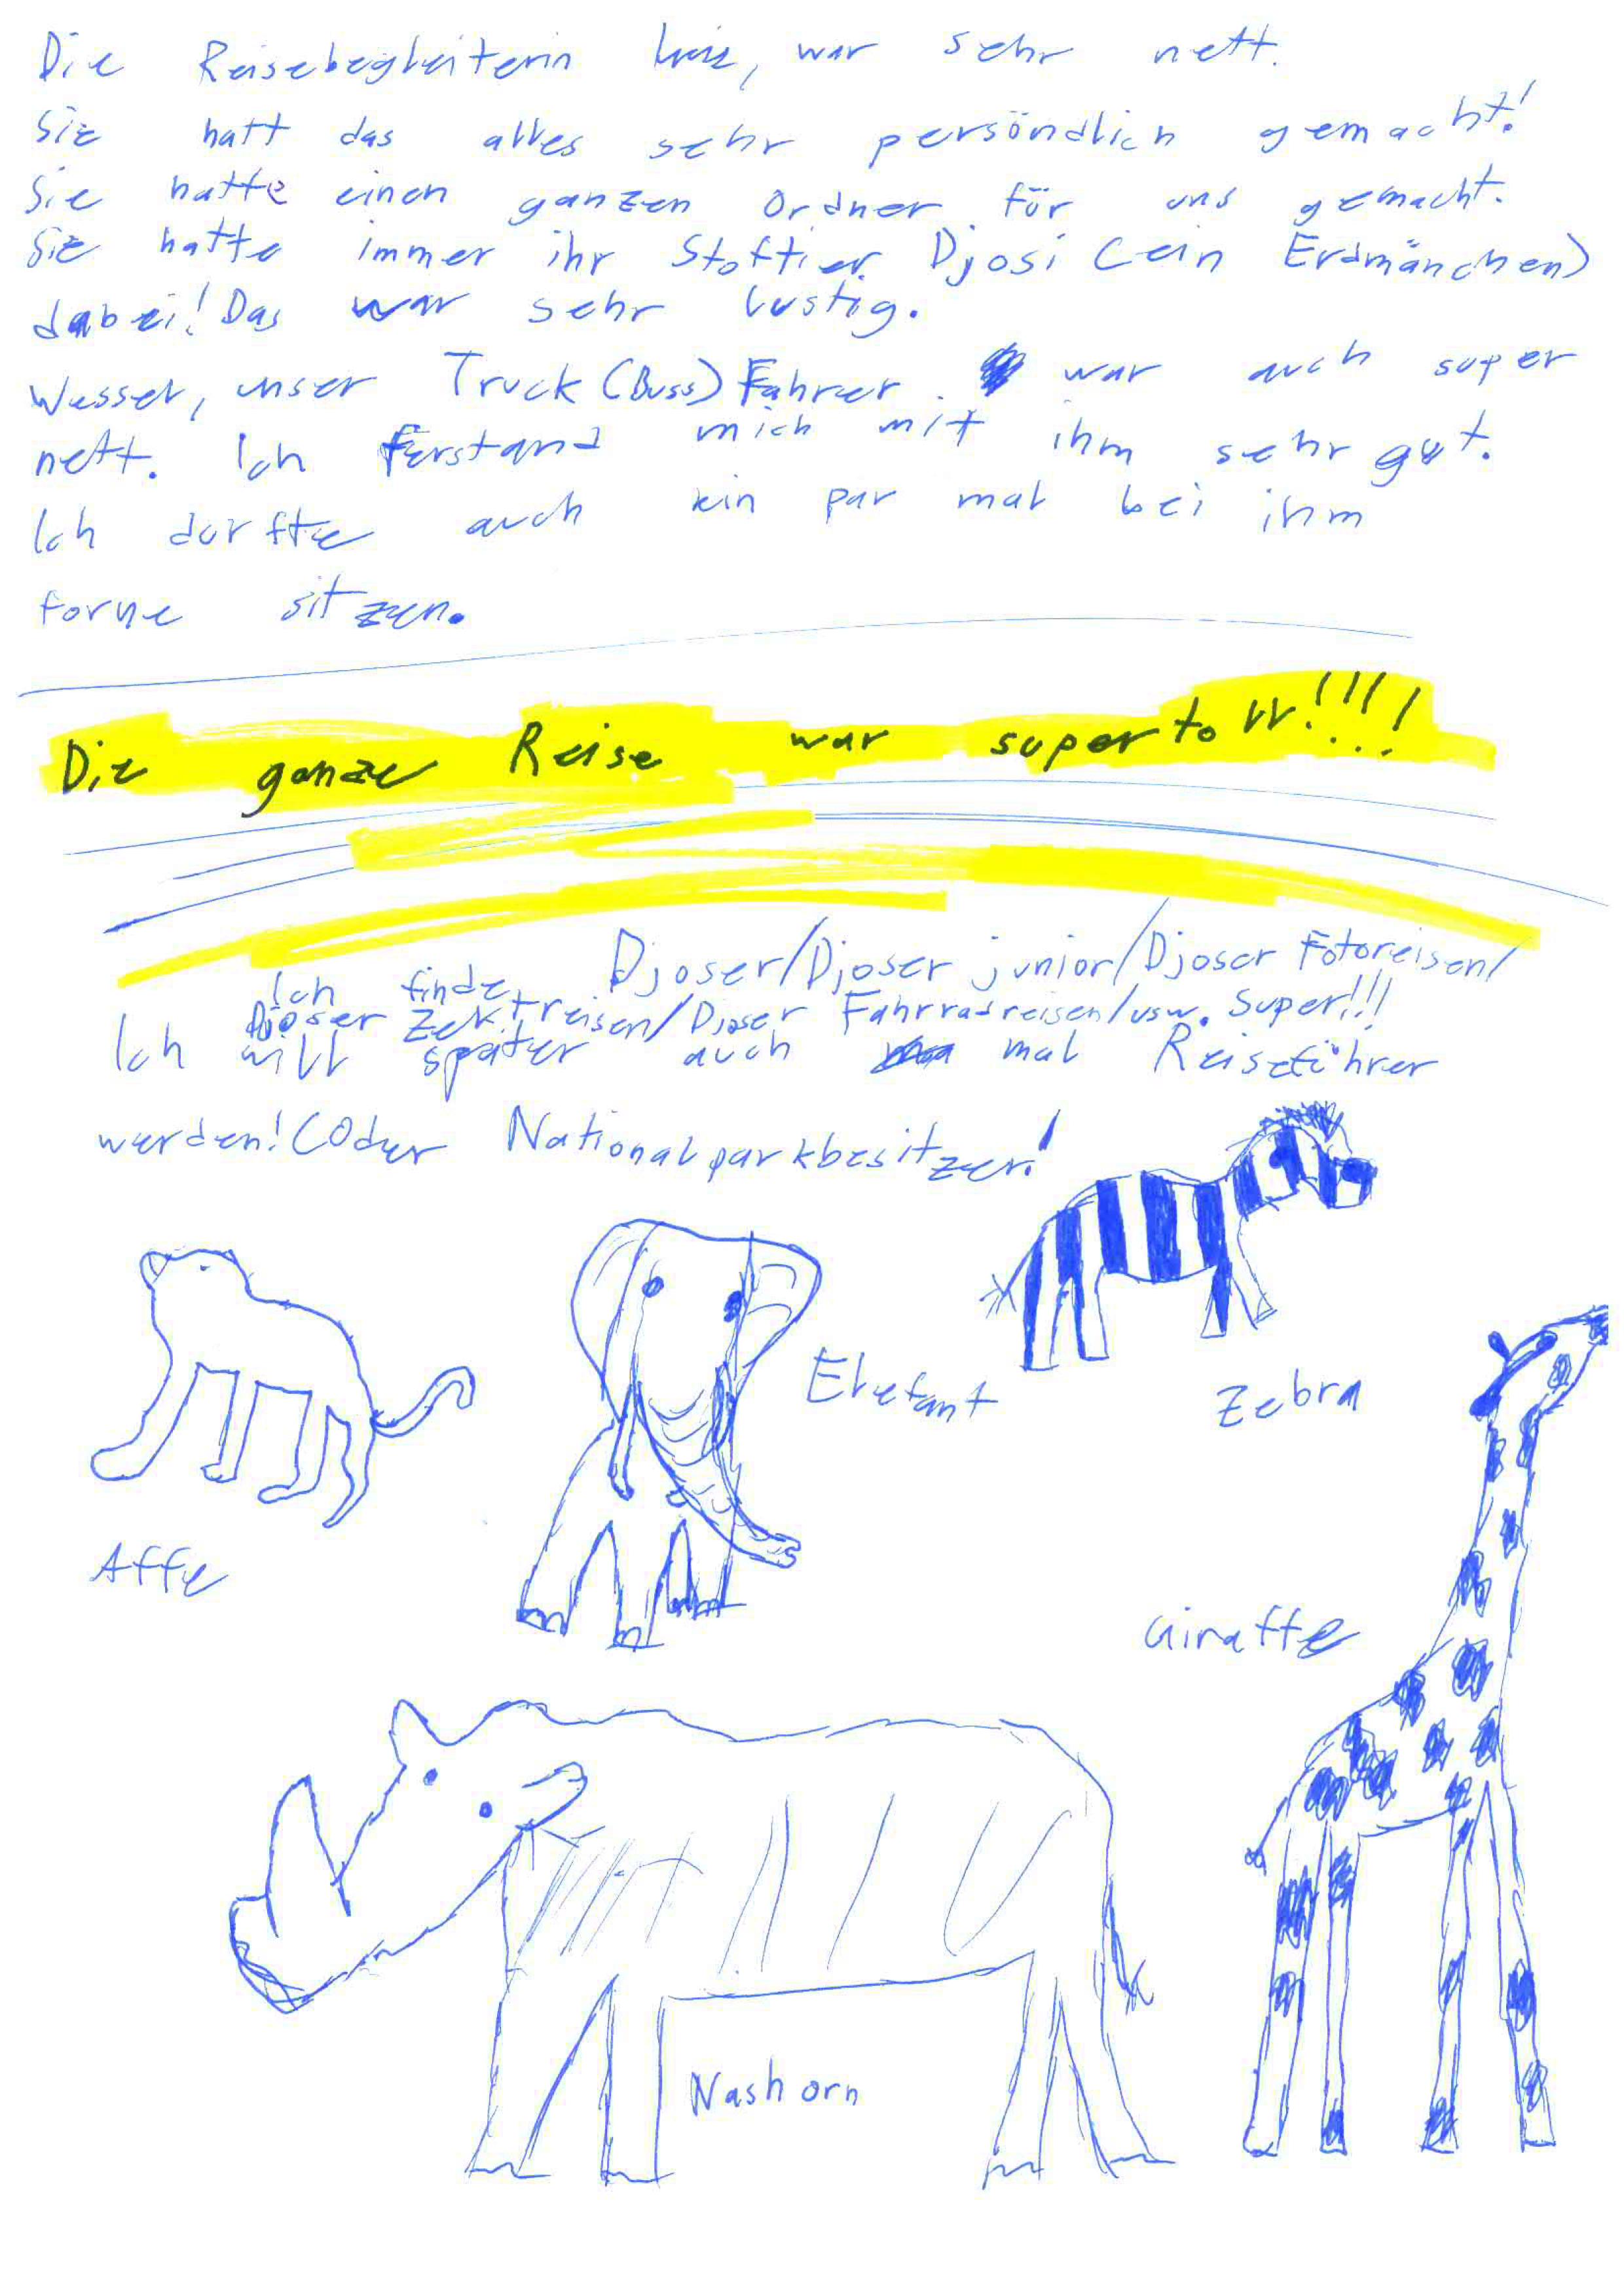 Die Reisebegleiterin war sehr nett.
Sie hatt das alles sehr persöndlich gemacht!
Sie hatte einen ganzen Ordner für uns gemacht.
Sie hatte immer ihr Stoftier Djosi (ein Erdmänchen)
dabei! Das war sehr lustig.
Wessel, unser Truck (Buss) Fahrer war auch super
nett. Ich ferstand mich mit ihm sehr gut.
Ich dürfte auch ein par mal bei ihm
forne sitzen.
Die ganze Reise war supertoll!!!!
Ich finde Djoser/Djoser junior/Djoser Fotoreisen/
Djoser Zeltreisen/Djoser Fahrradreisen/usw. Super!!!
Ich will später auch mal Reiseführer
werden! (Oder Nationalparkbesitzer!
Elefant
Zebra
Affe
Giraffe
Nashorn